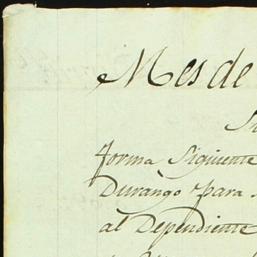 Mes de
forma Siguiente
Durango para
al Dependiente